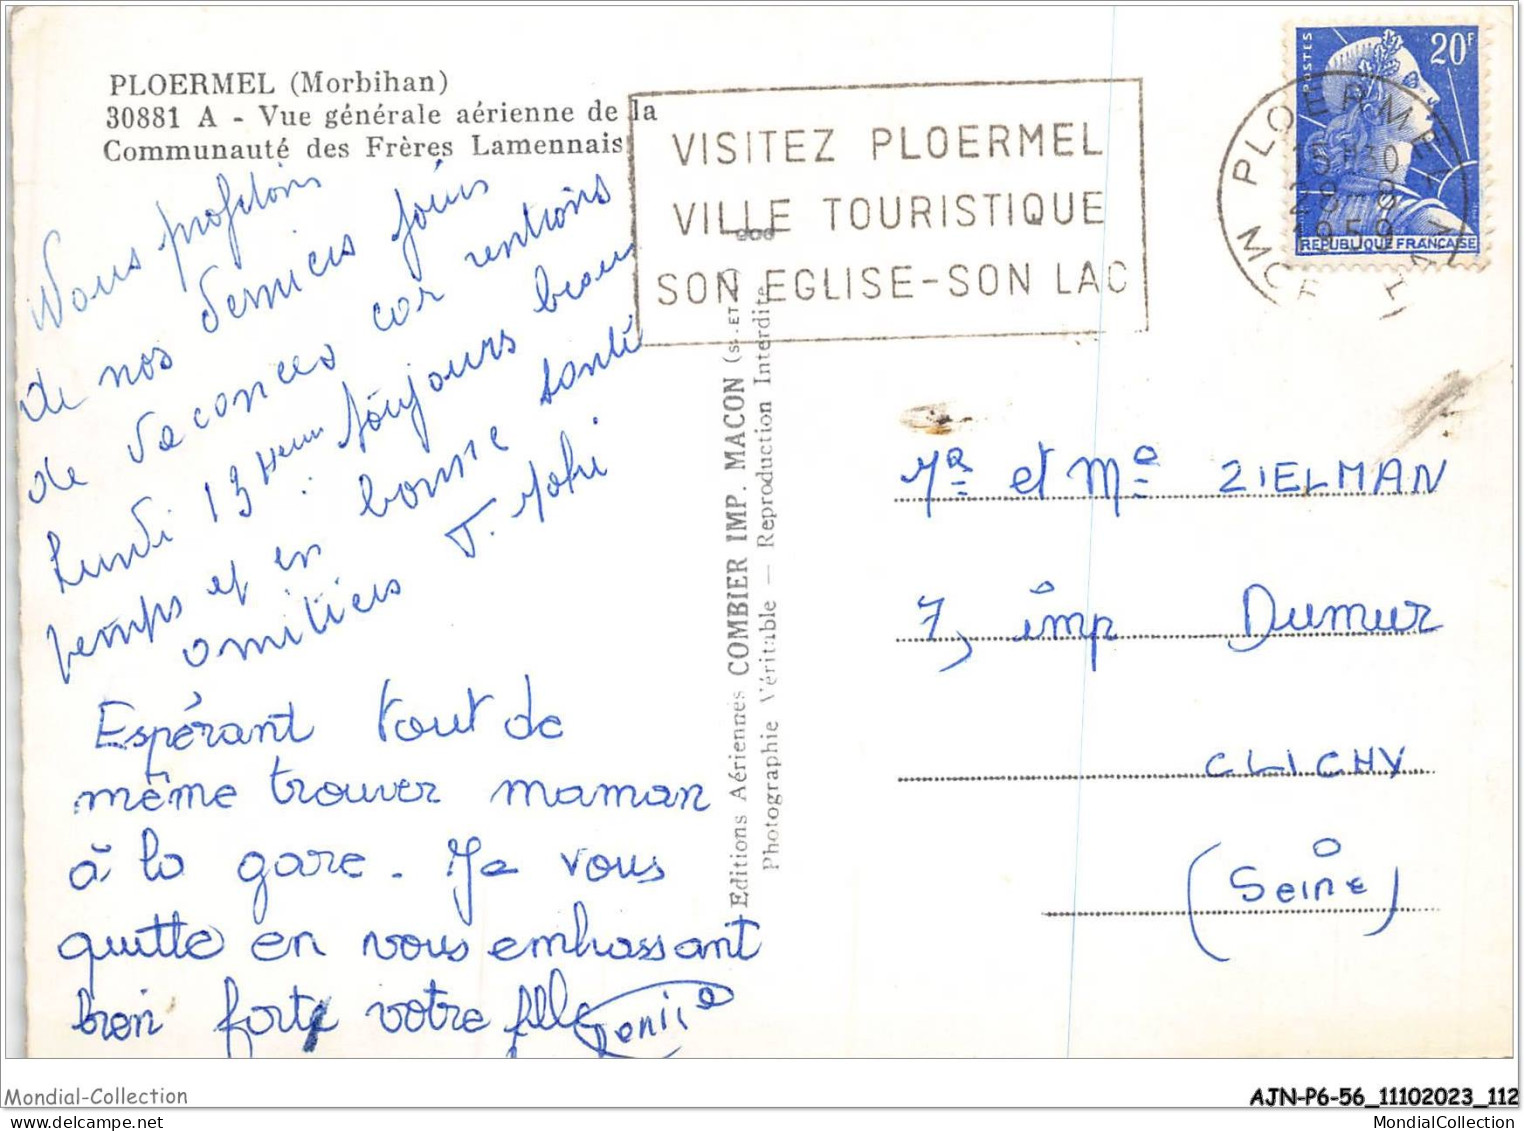 PLOERMEL (Morbihan)
30881 A - Vue générale aérienne de la
Communauté des Frères Lamennais
VISITEZ PLOERMEL
VILLE TOURISTIQUE
SON EGLISE-SON LAC
POSTES
20F
REPUBLIQUE FRANÇAISE
PLOERMEL
15H30
1959
Nous profitons
de nos derniers jours
de vacances car rentrons
Lundi 13 heures toujours beau
temps et en bonne santé
amitiés
Espérant tout de
même trouver maman
à la gare. Je vous
quitte en vous embrassant
bien forte votre fille
Editions Aériennes COMBIER IMP. MACON
Photographie Véritable — Reproduction Interdite
Mr et Me ZIELMAN
7, imp Dumur
CLICHY
(Seine)
Mondial-Collection
AJN-P6-56_11102023_112
MondialCollection